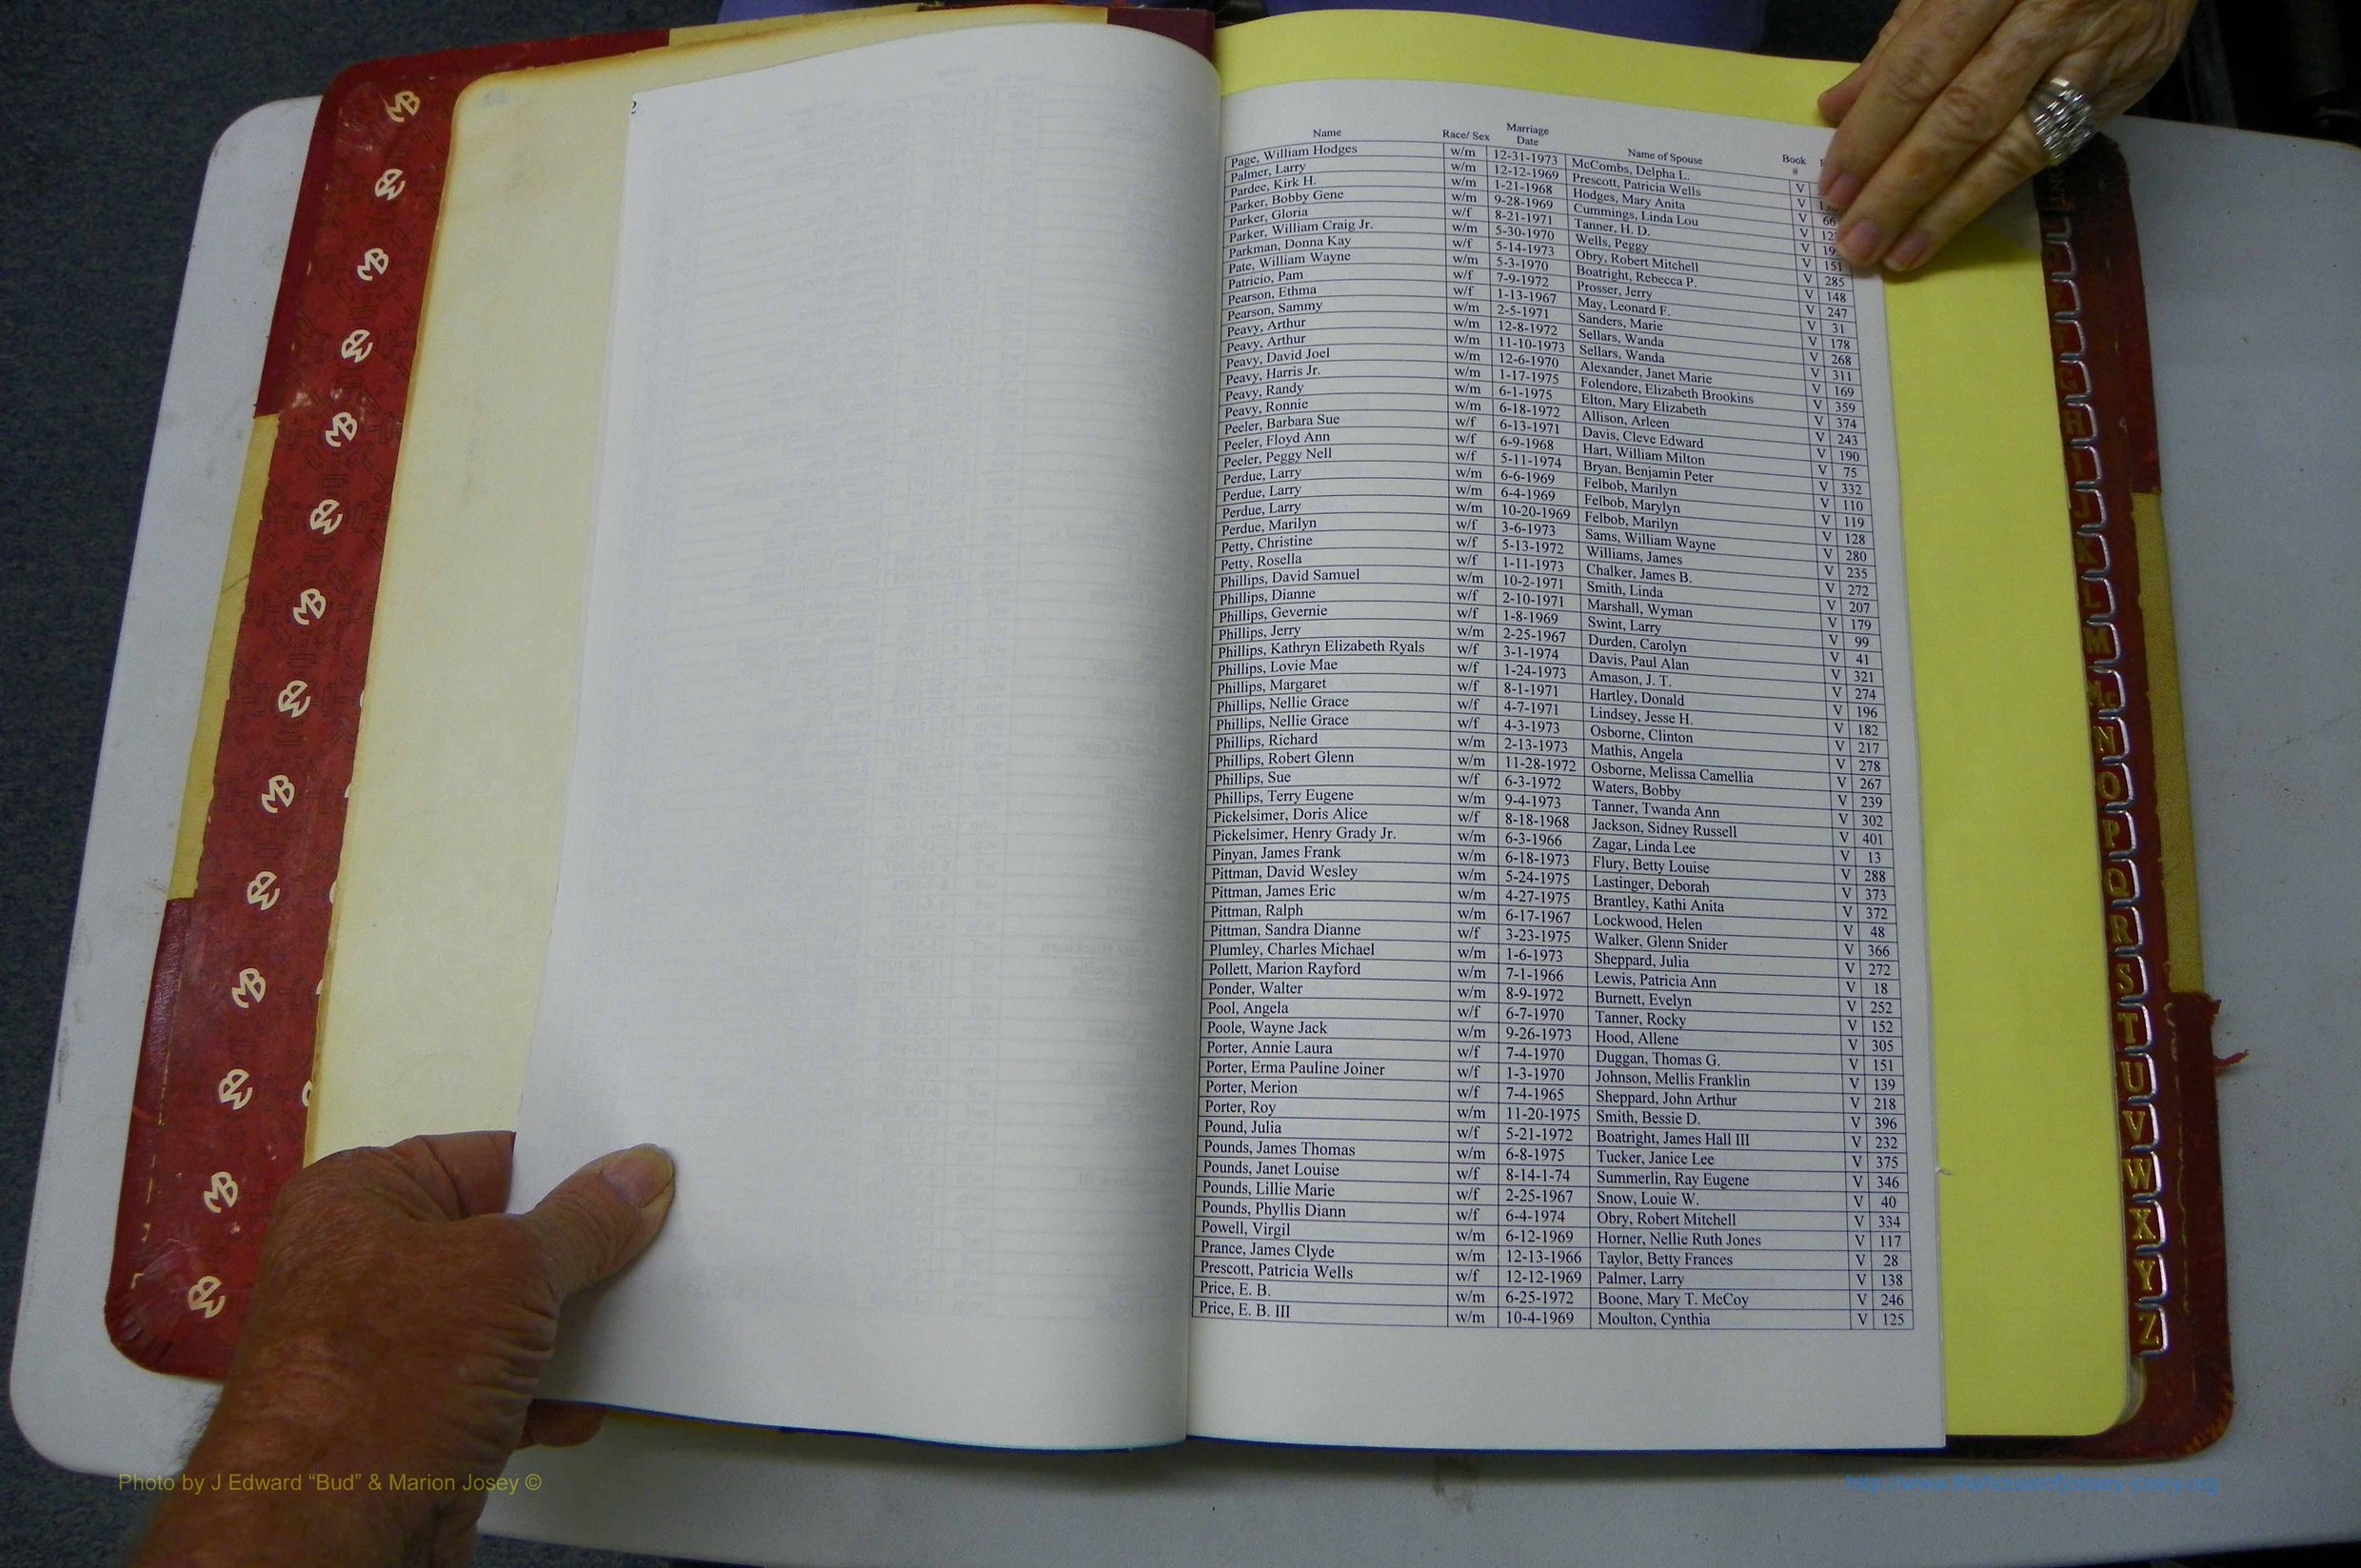 2
Name Race/ Sex Marriage Date Name of Spouse Book #
Page, William Hodges w/m 12-31-1973 McCombs, Delpha L. V
Palmer, Larry w/m 12-12-1969 Prescott, Patricia Wells V
Pardee, Kirk H. w/m 1-21-1968 Hodges, Mary Anita V 66
Parker, Bobby Gene w/m 9-28-1969 Cummings, Linda Lou V
Parker, Gloria w/f 8-21-1971 Tanner, H. D. V
Parker, William Craig Jr. w/m 5-30-1970 Wells, Peggy V 151
Parkman, Donna Kay w/f 5-14-1973 Obry, Robert Mitchell V 285
Pate, William Wayne w/m 5-3-1970 Boatright, Rebecca P. V 148
Patricio, Pam w/f 7-9-1972 Prosser, Jerry V 247
Pearson, Ethma w/f 1-13-1967 May, Leonard F. V 31
Pearson, Sammy w/m 2-5-1971 Sanders, Marie V 178
Peavy, Arthur w/m 12-8-1972 Sellars, Wanda V 268
Peavy, Arthur w/m 11-10-1973 Sellars, Wanda V 311
Peavy, David Joel w/m 12-6-1970 Alexander, Janet Marie V 169
Peavy, Harris Jr. w/m 1-17-1975 Folendore, Elizabeth Brookins V 359
Peavy, Randy w/m 6-1-1975 Elton, Mary Elizabeth V 374
Peavy, Ronnie w/m 6-18-1972 Allison, Arleen V 243
Peeler, Barbara Sue w/f 6-13-1971 Davis, Cleve Edward V 190
Peeler, Floyd Ann w/f 6-9-1968 Hart, William Milton V 75
Peeler, Peggy Nell w/f 5-11-1974 Bryan, Benjamin Peter V 332
Perdue, Larry w/m 6-6-1969 Felbob, Marilyn V 110
Perdue, Larry w/m 6-4-1969 Felbob, Marylyn V 119
Perdue, Larry w/m 10-20-1969 Felbob, Marilyn V 128
Perdue, Marilyn w/f 3-6-1973 Sams, William Wayne V 280
Petty, Christine w/f 5-13-1972 Williams, James V 235
Petty, Rosella w/f 1-11-1973 Chalker, James B. V 272
Phillips, David Samuel w/m 10-2-1971 Smith, Linda V 207
Phillips, Dianne w/f 2-10-1971 Marshall, Wyman V 179
Phillips, Gevernie w/f 1-8-1969 Swint, Larry V 99
Phillips, Jerry w/m 2-25-1967 Durden, Carolyn V 41
Phillips, Kathryn Elizabeth Ryals w/f 3-1-1974 Davis, Paul Alan V 321
Phillips, Lovie Mae w/f 1-24-1973 Amason, J. T. V 274
Phillips, Margaret w/f 8-1-1971 Hartley, Donald V 196
Phillips, Nellie Grace w/f 4-7-1971 Lindsey, Jesse H. V 182
Phillips, Nellie Grace w/f 4-3-1973 Osborne, Clinton V 217
Phillips, Richard w/m 2-13-1973 Mathis, Angela V 278
Phillips, Robert Glenn w/m 11-28-1972 Osborne, Melissa Camellia V 267
Phillips, Sue w/f 6-3-1972 Waters, Bobby V 239
Phillips, Terry Eugene w/m 9-4-1973 Tanner, Twanda Ann V 302
Pickelsimer, Doris Alice w/f 8-18-1968 Jackson, Sidney Russell V 401
Pickelsimer, Henry Grady Jr. w/m 6-3-1966 Zagar, Linda Lee V 13
Pinyan, James Frank w/m 6-18-1973 Flury, Betty Louise V 288
Pittman, David Wesley w/m 5-24-1975 Lastinger, Deborah V 373
Pittman, James Eric w/m 4-27-1975 Brantley, Kathi Anita V 372
Pittman, Ralph w/m 6-17-1967 Lockwood, Helen V 48
Pittman, Sandra Dianne w/f 3-23-1975 Walker, Glenn Snider V 366
Plumley, Charles Michael w/m 1-6-1973 Sheppard, Julia V 272
Pollett, Marion Rayford w/m 7-1-1966 Lewis, Patricia Ann V 18
Ponder, Walter w/m 8-9-1972 Burnett, Evelyn V 252
Pool, Angela w/f 6-7-1970 Tanner, Rocky V 152
Poole, Wayne Jack w/m 9-26-1973 Hood, Allene V 305
Porter, Annie Laura w/f 7-4-1970 Duggan, Thomas G. V 151
Porter, Erma Pauline Joiner w/f 1-3-1970 Johnson, Mellis Franklin V 139
Porter, Merion w/f 7-4-1965 Sheppard, John Arthur V 218
Porter, Roy w/m 11-20-1975 Smith, Bessie D. V 396
Pound, Julia w/f 5-21-1972 Boatright, James Hall III V 232
Pounds, James Thomas w/m 6-8-1975 Tucker, Janice Lee V 375
Pounds, Janet Louise w/f 8-14-1-74 Summerlin, Ray Eugene V 346
Pounds, Lillie Marie w/f 2-25-1967 Snow, Louie W. V 40
Pounds, Phyllis Diann w/f 6-4-1974 Obry, Robert Mitchell V 334
Powell, Virgil w/m 6-12-1969 Horner, Nellie Ruth Jones V 117
Prance, James Clyde w/m 12-13-1966 Taylor, Betty Frances V 28
Prescott, Patricia Wells w/f 12-12-1969 Palmer, Larry V 138
Price, E. B. w/m 6-25-1972 Boone, Mary T. McCoy V 246
Price, E. B. III w/m 10-4-1969 Moulton, Cynthia V 125
G
H
I
J
K
L
M
Mc
N
O
P
Q
R
S
T
U
V
W
X
Y
Z
Photo by J Edward “Bud” & Marion Josey ©